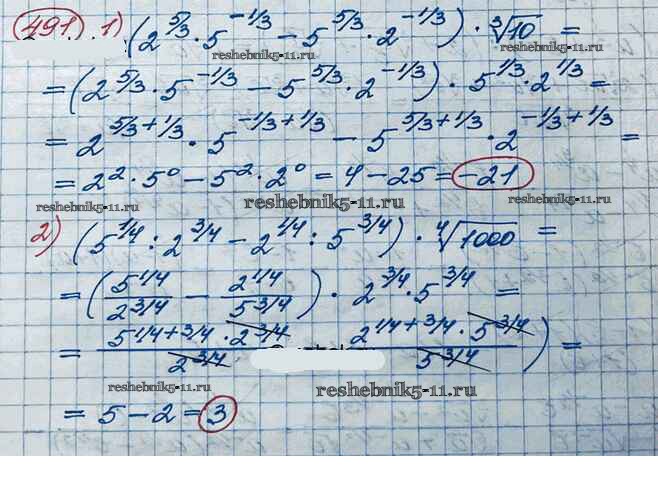 491.) 1) (2^(5/3) · 5^(-1/3) − 5^(5/3) · 2^(-1/3)) · ∛10 =
reshebnik5-11.ru
= (2^(5/3) · 5^(-1/3) − 5^(5/3) · 2^(-1/3)) · 5^(1/3) · 2^(1/3) =
reshebnik5-11.ru
= 2^(5/3+1/3) · 5^(-1/3+1/3) − 5^(5/3+1/3) · 2^(-1/3+1/3) =
= 2² · 5⁰ − 5² · 2⁰ = 4 − 25 = −21
reshebnik5-11.ru
reshebnik5-11.ru
2) (5^(1/4) : 2^(3/4) − 2^(1/4) : 5^(3/4)) · ∜1000 =
= (5^(1/4)/2^(3/4) − 2^(1/4)/5^(3/4)) · 2^(3/4) · 5^(3/4) =
= 5^(1/4+3/4) · 2^(3/4)/2^(3/4) 2^(1/4+3/4) · 5^(3/4)/5^(3/4)) =
reshebnik5-11.ru
reshebnik5-11.ru
= 5 − 2 = 3